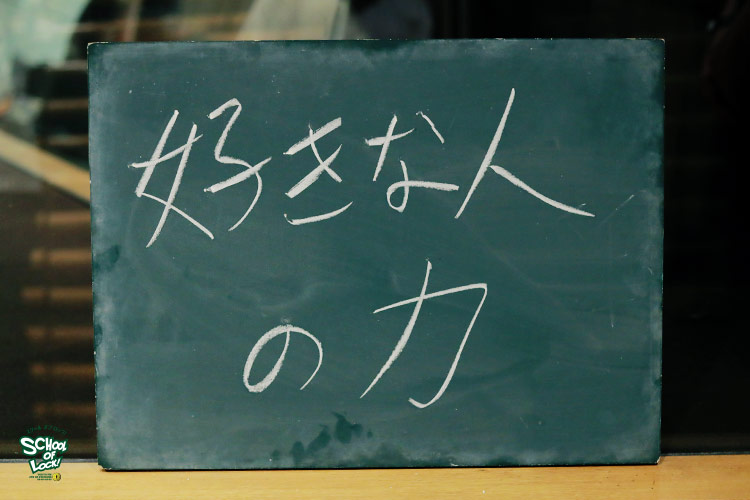 好きな人
の力
SCHOOL
OF
LOCK!